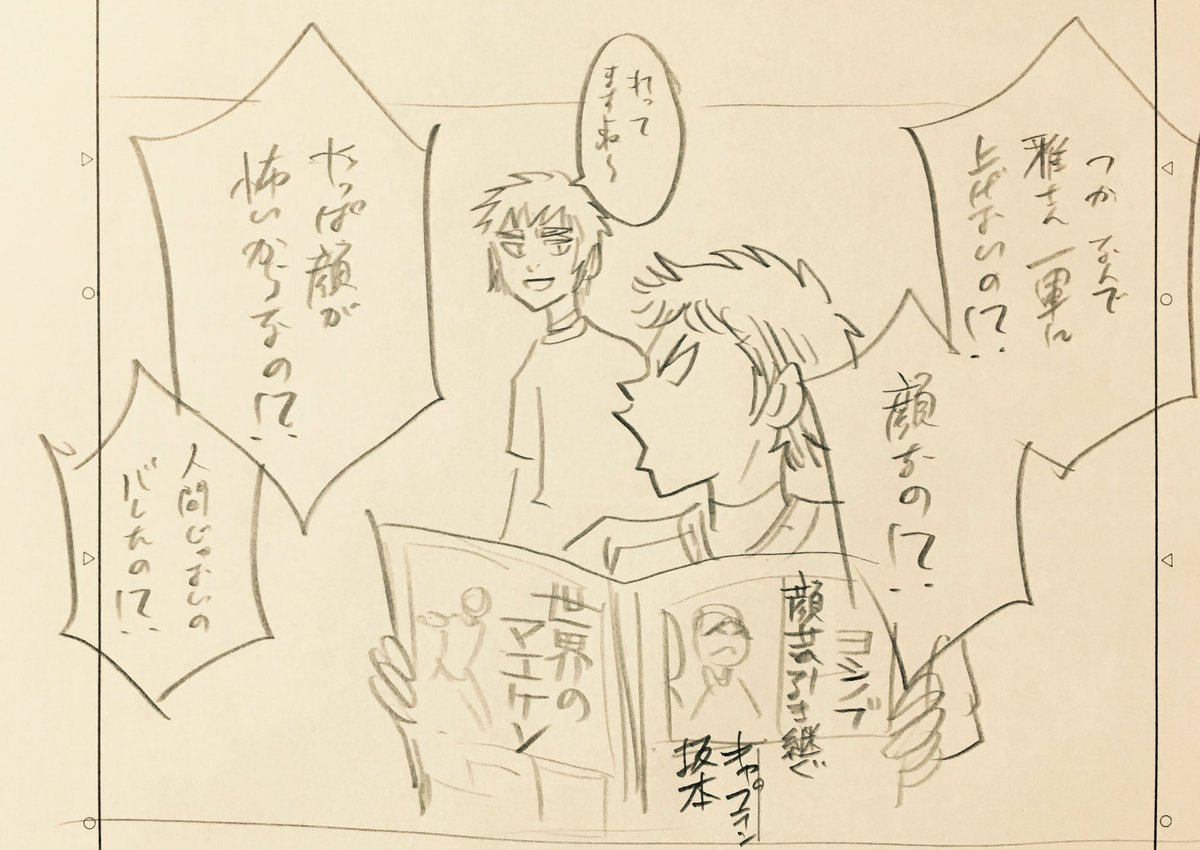 つか なんで
雅さん 一軍に
上げないの!?
顔なの!?
れって
ますね〜
やっぱ顔が
怖いからなの!?
人間じゃないの
バレたの!?
ヨシノブ
顔芸の引き継ぐ
キャプテン
坂本
世界の
マエケン